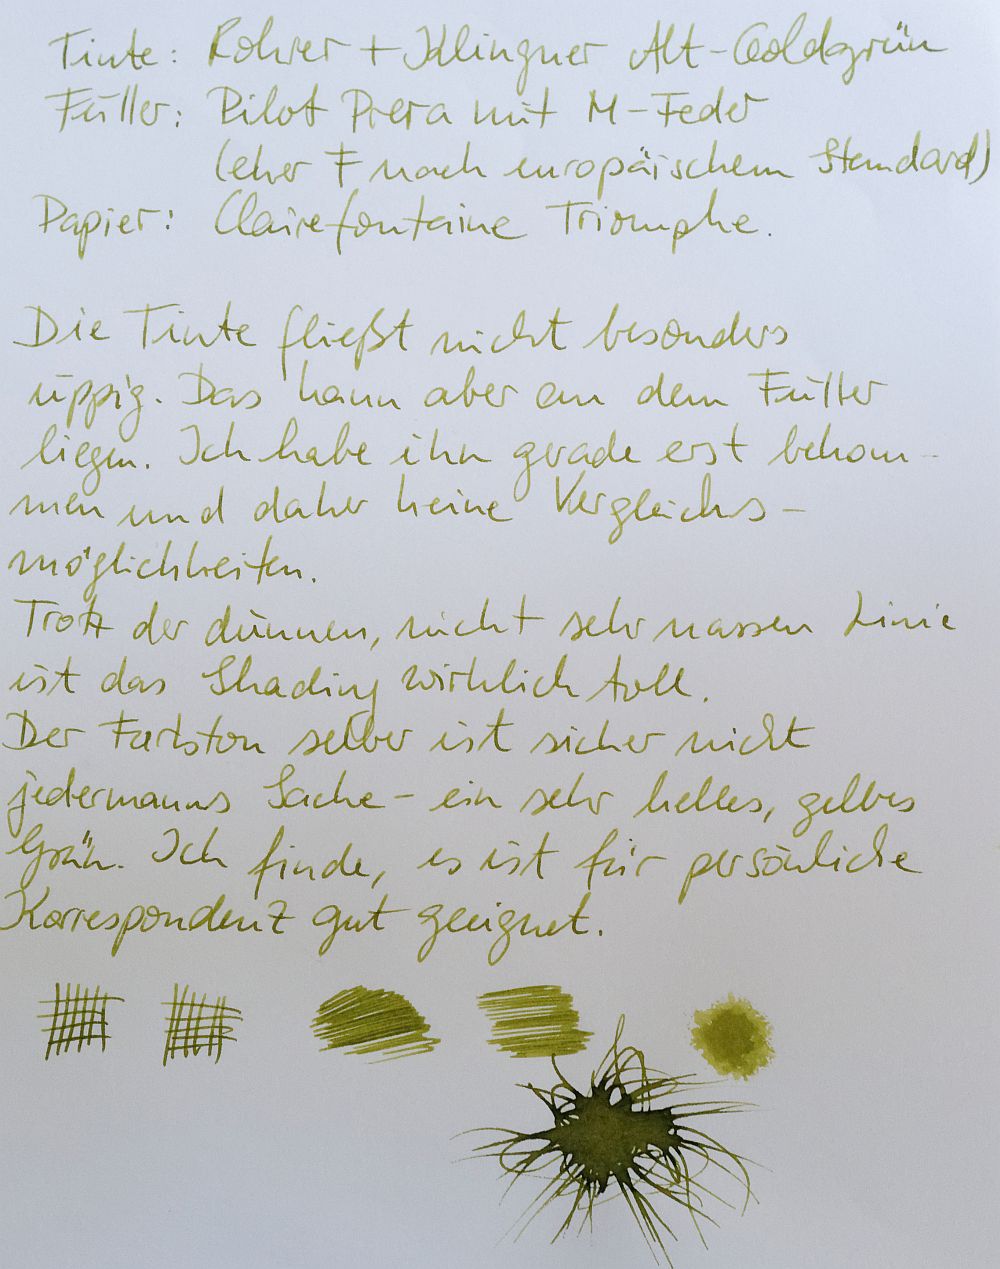 Tinte: Rohrer + Klingner Alt-Goldgrün
Füller: Pilot Prera mit M-Feder
(eher F nach europäischem Standard)
Papier: Clairefontaine Triomphe.
Die Tinte fließt nicht besonders
üppig. Das kann aber an dem Füller
liegen. Ich habe ihn gerade erst bekom-
men und daher keine Vergleichs-
möglichkeiten.
Trotz der dünnen, nicht sehr nassen Linie
ist das Shading wirklich toll.
Der Farbton selber ist sicher nicht
jedermanns Sache - ein sehr helles, gelbes
Grün. Ich finde, es ist für persönliche
Korrespondenz gut geeignet.